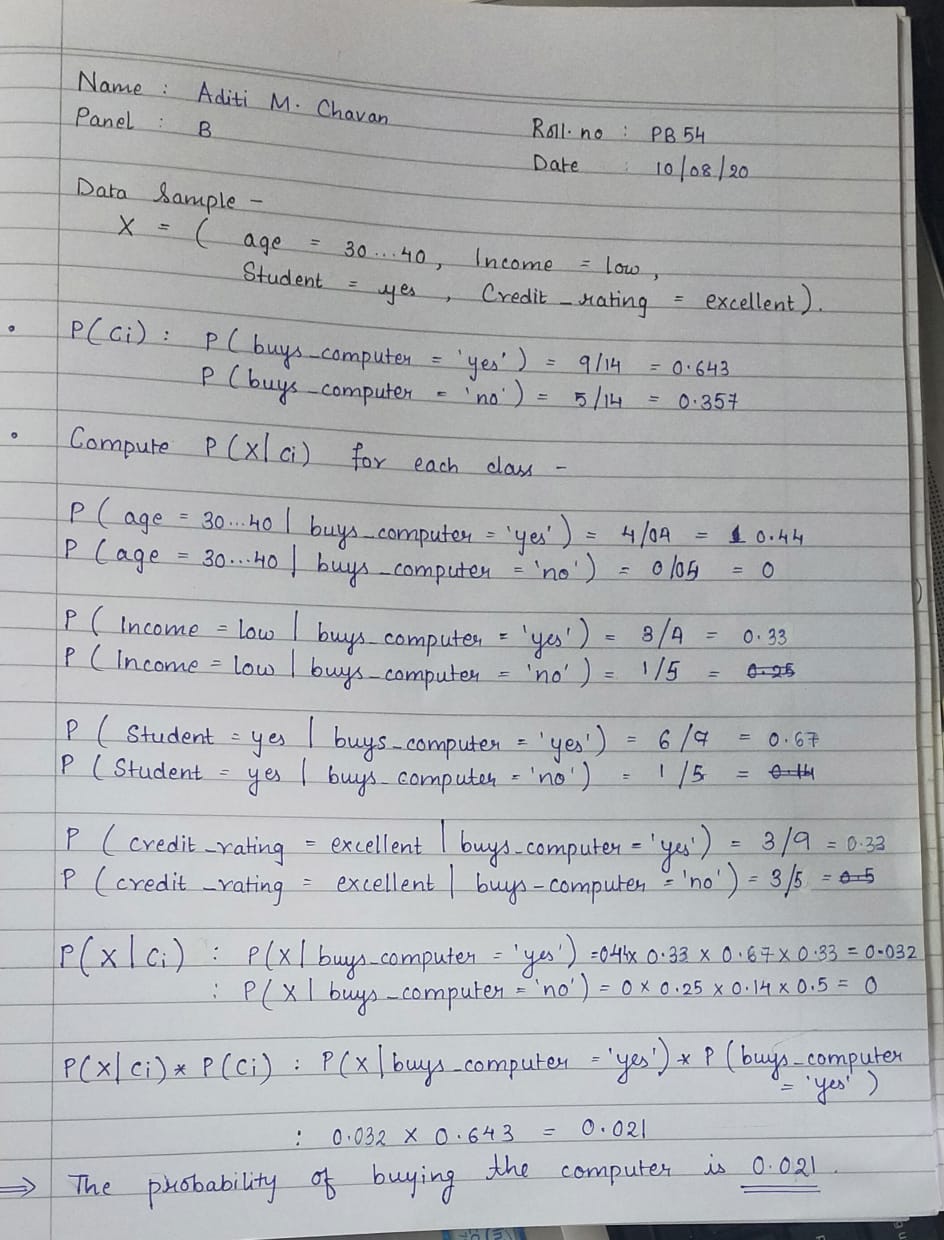 Name : Aditi M. Chavan
Panel : B
Roll. no : PB 54
Date : 10/08/20
Data Sample -
X = ( age = 30...40, Income = low,
Student = yes, Credit_rating = excellent).
• P(Ci) : P(buys_computer = 'yes') = 9/14 = 0.643
P(buys_computer = 'no') = 5/14 = 0.357
• Compute P(X|Ci) for each class -
P(age = 30...40 | buys_computer = 'yes') = 4/09 = 0.44
P(age = 30...40 | buys_computer = 'no') = 0/05 = 0
P(Income = low | buys_computer = 'yes') = 3/9 = 0.33
P(Income = low | buys_computer = 'no') = 1/5 = 0.25
P(Student = yes | buys_computer = 'yes') = 6/9 = 0.67
P(Student = yes | buys_computer = 'no') = 1/5 = 0.14
P(credit_rating = excellent | buys_computer = 'yes') = 3/9 = 0.33
P(credit_rating = excellent | buys-computer = 'no') = 3/5 = 0.5
P(X|Ci) : P(X| buys_computer = 'yes') = 044x 0.33 x 0.67 x 0.33 = 0.032
: P(X| buys_computer = 'no') = 0 x 0.25 x 0.14 x 0.5 = 0
P(X|Ci) * P(Ci) : P(X| buys_computer = 'yes') * P(buys_computer
= 'yes')
: 0.032 x 0.643 = 0.021
⇒ The probability of buying the computer is 0.021.